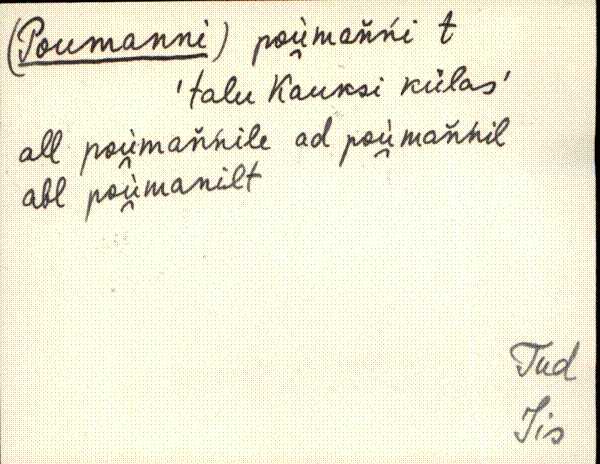 (Poumanni) poù̯mańńi t
'talu Kauksi külas'
all poù̯mańńile ad poù̯mańńil
abl poù̯manilt
Tud
Iis